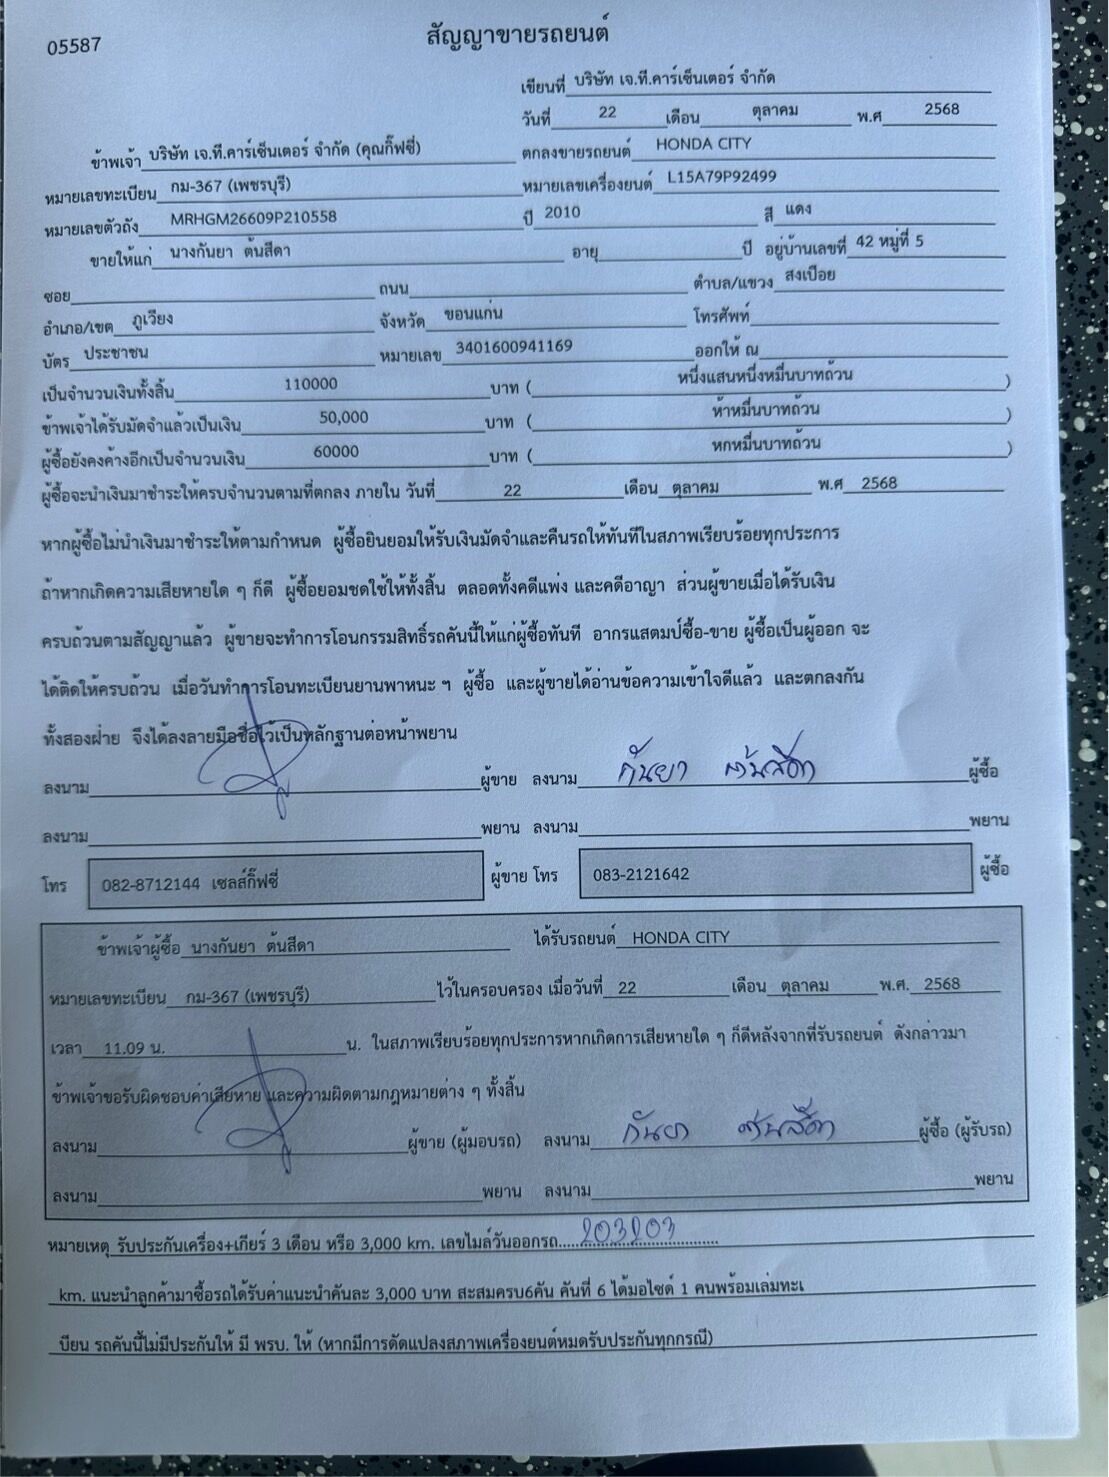 สัญญาขายรถยนต์
05587
เขียนที่ บริษัท เจ.ที.คาร์เซ็นเตอร์ จำกัด
วันที่ 22 เดือน ตุลาคม พ.ศ 2568
ข้าพเจ้า บริษัท เจ.ที.คาร์เซ็นเตอร์ จำกัด (คุณกิ๊ฟซี่) ตกลงขายรถยนต์ HONDA CITY
หมายเลขทะเบียน กม-367 (เพชรบุรี) หมายเลขเครื่องยนต์ L15A79P92499
หมายเลขตัวถัง MRHGM26609P210558 ปี 2010 สี แดง
ขายให้แก่ นางกันยา ต้นสีดา อายุ ปี อยู่บ้านเลขที่ 42 หมู่ที่ 5
ซอย ถนน ตำบล/แขวง สงเปือย
อำเภอ/เขต ภูเวียง จังหวัด ขอนแก่น โทรศัพท์
บัตร ประชาชน หมายเลข 3401600941169 ออกให้ ณ
เป็นจำนวนเงินทั้งสิ้น 110000 บาท ( หนึ่งแสนหนึ่งหมื่นบาทถ้วน )
ข้าพเจ้าได้รับมัดจำแล้วเป็นเงิน 50,000 บาท ( ห้าหมื่นบาทถ้วน )
ผู้ซื้อยังคงค้างอีกเป็นจำนวนเงิน 60000 บาท ( หกหมื่นบาทถ้วน )
ผู้ซื้อจะนำเงินมาชำระให้ครบจำนวนตามที่ตกลง ภายใน วันที่ 22 เดือน ตุลาคม พ.ศ 2568
หากผู้ซื้อไม่นำเงินมาชำระให้ตามกำหนด ผู้ซื้อยินยอมให้รับเงินมัดจำและคืนรถให้ทันทีในสภาพเรียบร้อยทุกประการ
ถ้าหากเกิดความเสียหายใด ๆ ก็ดี ผู้ซื้อยอมชดใช้ให้ทั้งสิ้น ตลอดทั้งคดีแพ่ง และคดีอาญา ส่วนผู้ขายเมื่อได้รับเงิน
ครบถ้วนตามสัญญาแล้ว ผู้ขายจะทำการโอนกรรมสิทธิ์รถคันนี้ให้แก่ผู้ซื้อทันที อากรแสตมป์ซื้อ-ขาย ผู้ซื้อเป็นผู้ออก จะ
ได้ติดให้ครบถ้วน เมื่อวันทำการโอนทะเบียนยานพาหนะ ฯ ผู้ซื้อ และผู้ขายได้อ่านข้อความเข้าใจดีแล้ว และตกลงกัน
ทั้งสองฝ่าย จึงได้ลงลายมือชื่อไว้เป็นหลักฐานต่อหน้าพยาน
ลงนาม ผู้ขาย ลงนาม กันยา ต้นสีดา ผู้ซื้อ
ลงนาม พยาน ลงนาม พยาน
โทร 082-8712144 เซลส์กิ๊ฟซี่ ผู้ขาย โทร 083-2121642 ผู้ซื้อ
ข้าพเจ้าผู้ซื้อ นางกันยา ต้นสีดา ได้รับรถยนต์ HONDA CITY
หมายเลขทะเบียน กม-367 (เพชรบุรี) ไว้ในครอบครอง เมื่อวันที่ 22 เดือน ตุลาคม พ.ศ. 2568
เวลา 11.09 น. น. ในสภาพเรียบร้อยทุกประการหากเกิดการเสียหายใด ๆ ก็ดีหลังจากที่รับรถยนต์ ดังกล่าวมา
ข้าพเจ้าขอรับผิดชอบค่าเสียหาย และความผิดตามกฎหมายต่าง ๆ ทั้งสิ้น
ลงนาม ผู้ขาย (ผู้มอบรถ) ลงนาม กันยา ต้นสีดา ผู้ซื้อ (ผู้รับรถ)
ลงนาม พยาน ลงนาม พยาน
หมายเหตุ รับประกันเครื่อง+เกียร์ 3 เดือน หรือ 3,000 km. เลขไมล์วันออกรถ.....203203.....
km. แนะนำลูกค้ามาซื้อรถได้รับค่าแนะนำคันละ 3,000 บาท สะสมครบ6คัน คันที่ 6 ได้มอไซด์ 1 คนพร้อมเล่มทะเ
บียน รถคันนี้ไม่มีประกันให้ มี พรบ. ให้ (หากมีการดัดแปลงสภาพเครื่องยนต์หมดรับประกันทุกกรณี)